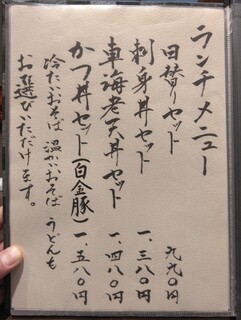 ランチメニュー
日替りセット 九九〇円
刺身丼セット 一、三八〇円
車海老天丼セット 一、四八〇円
かつ丼セット(白金豚) 一、五八〇円
冷たいおそば 温かいおそば うどんも
お選びいただけます。